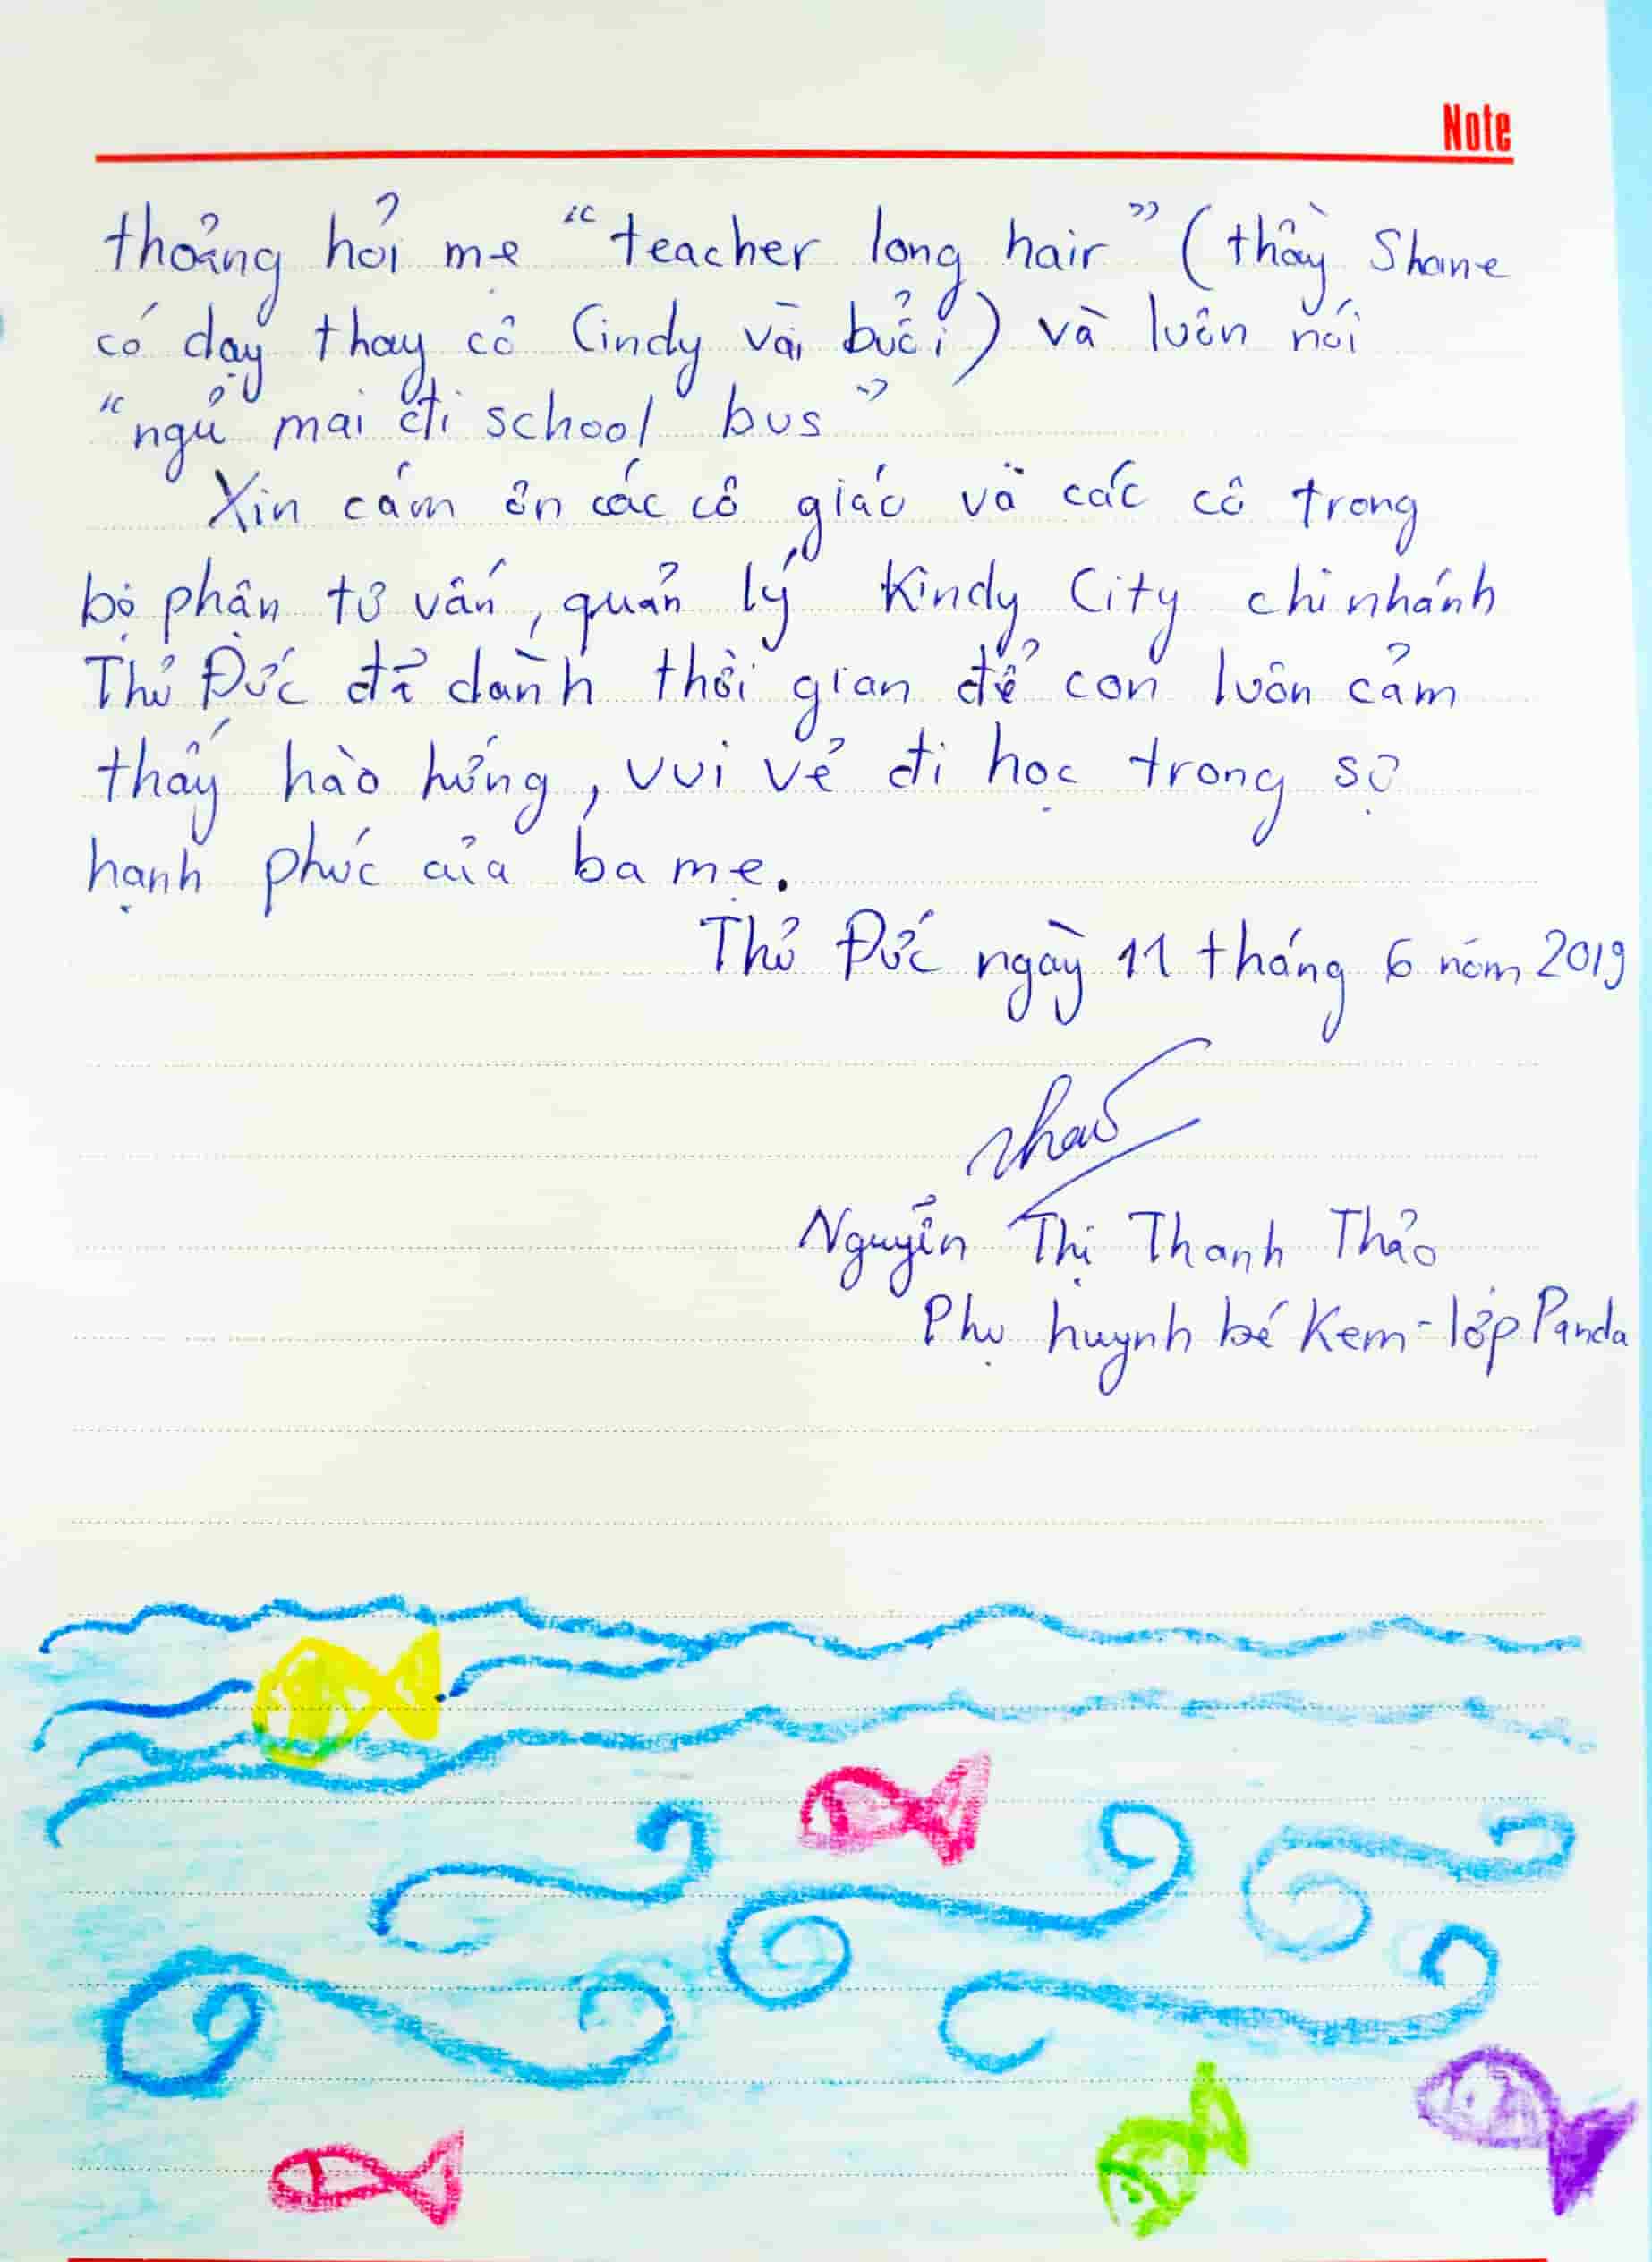 Note
thoảng hỏi mẹ “teacher long hair” (thầy Shane
có dạy thay cô Cindy vài buổi) và luôn nói
“ngủ mai đi school bus”
Xin cám ơn các cô giáo và các cô trong
bộ phận tư vấn, quản lý Kindy City chi nhánh
Thủ Đức đã dành thời gian để con luôn cảm
thấy hào hứng, vui vẻ đi học trong sự
hạnh phúc của ba mẹ.
Thủ Đức ngày 11 tháng 6 năm 2019
Nguyễn Thị Thanh Thảo
Phụ huynh bé Kem - lớp Panda